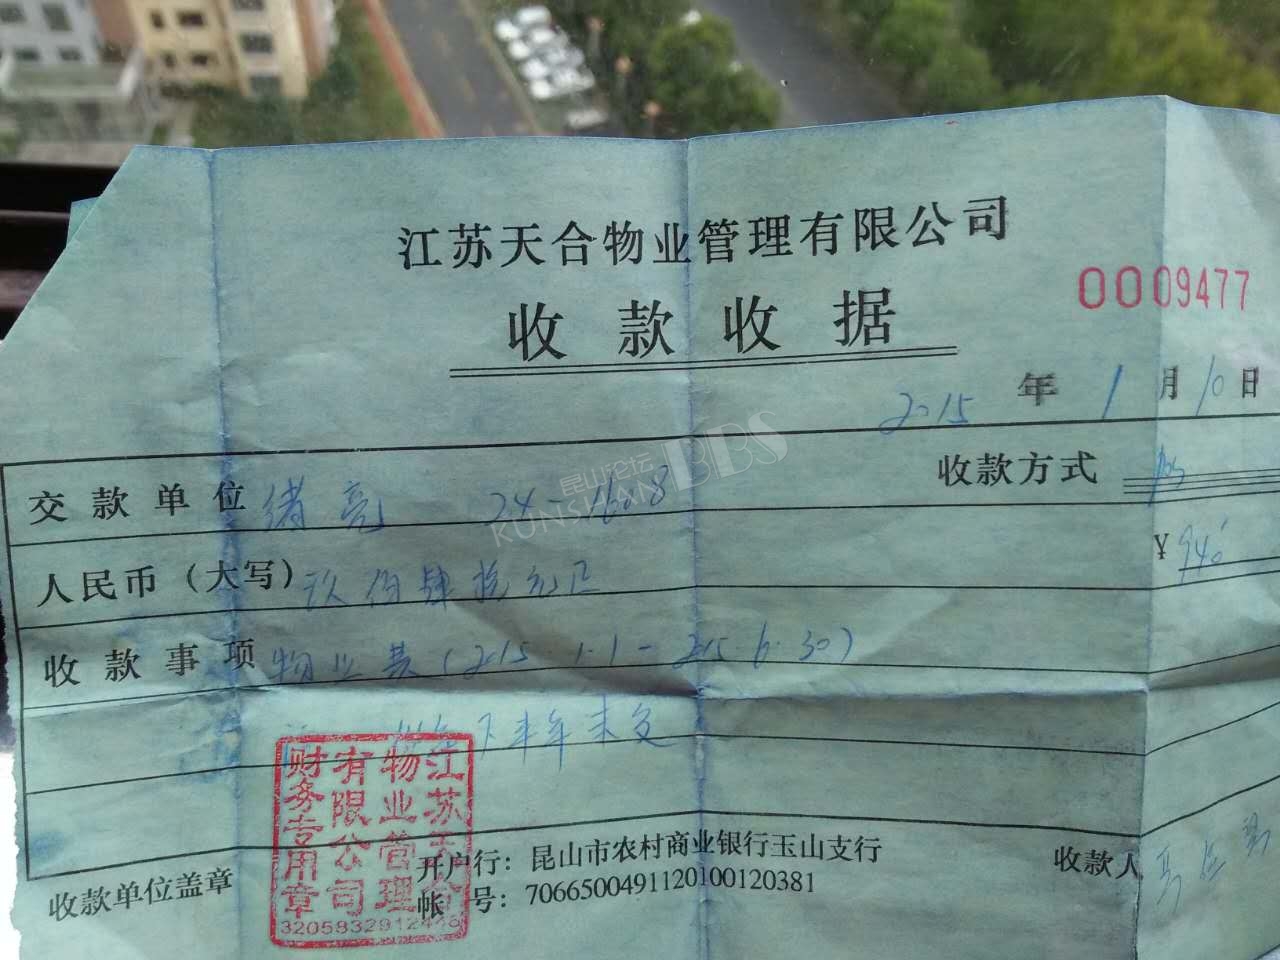 江苏天合物业管理有限公司
收款收据
0009477
2015 年 1 月 10 日
交款单位 绪亮 24-1608 收款方式
人民币（大写） 玖佰肆拾元正 ¥ 940
收款事项 物业费（2015.1.1-2015.6.30）
下半年未交
江苏天合
物业管理
有限公司
财务专用章
收款单位盖章
开户行：昆山市农村商业银行玉山支行
帐 号：706650049112010012​0381
收款人
昆山论坛
KUNSHAN BBS